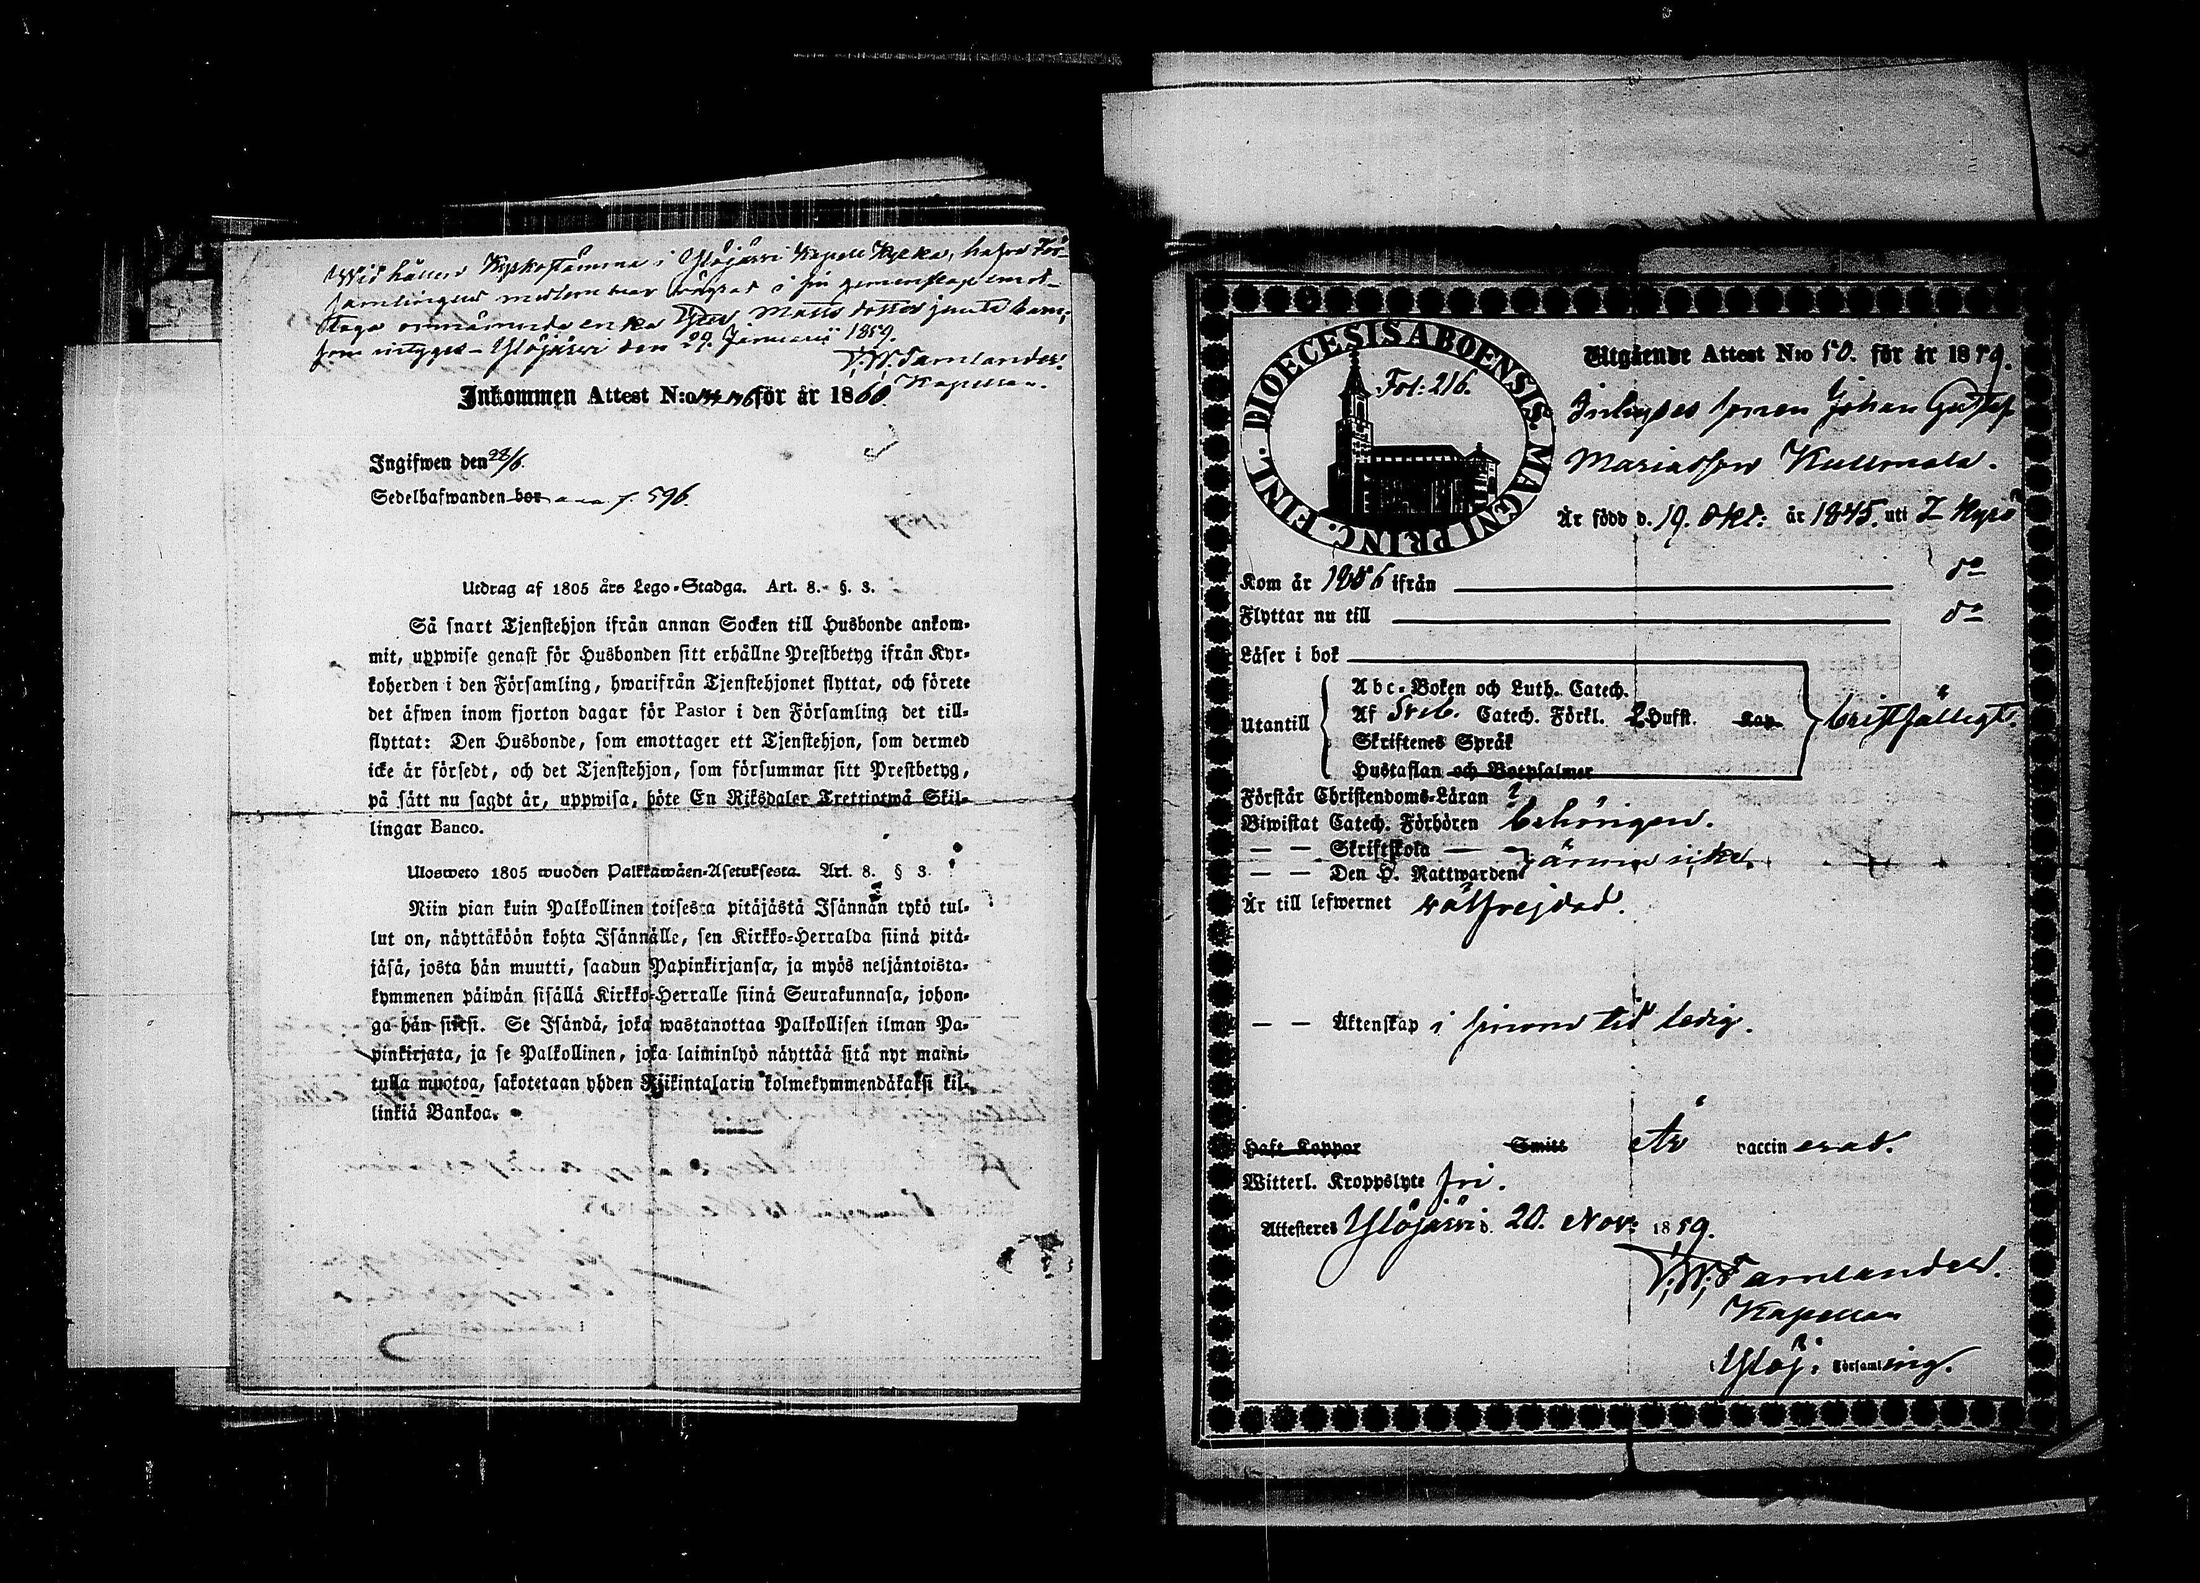 Wid hållen Kyrkostämma i Ylöjärvi Kapell Kyrka, hafva För-
samlingens medlemmar wägrat i sin gemenskap emot-
taga omnämnda enka Matts dotter jemte barn;
som intygas. Ylöjärvi den 29. Januarii 1859.
F. W. Tamlander.
Kapellan.
Inkommen Attest N:o för år 1860.
Ingifwen den 28/6.
Sedelhafwanden bor 596.
Utdrag af 1805 års Lego-Stadga. Art. 8. §. 3.
Så snart Tjenstehjon ifrån annan Socken till Husbonde ankom-
mit, uppwise genast för Husbonden sitt erhållne Prestbetyg ifrån Kyr-
koherden i den Församling, hwarifrån Tjenstehjonet flyttat, och förete
det äfwen inom fjorton dagar för Pastor i den Församling det till-
flyttat: Den Husbonde, som emottager ett Tjenstehjon, som dermed
icke är försedt, och det Tjenstehjon, som försummar sitt Prestbetyg,
på sätt nu sagdt är, uppwisa, böte En Riksdaler Trettiotwå Skil-
lingar Banco.
Ulosweto 1805 wuoden Palkkawäen-Asetuksesta. Art. 8. § 3.
Niin pian kuin Palkollinen toisesta pitäjästä Isännän tykö tul-
lut on, näyttäköön kohta Isännälle, sen Kirkko-Herralda siinä pitä-
jäsä, josta hän muutti, saadun Papinkirjansa, ja myös neljäntoista-
kymmenen päiwän sisällä Kirkko-Herralle siinä Seurakunnasa, johon-
ga hän siirsi. Se Isändä, joka wastanottaa Palkollisen ilman Pa-
pinkirjata, ja se Palkollinen, joka laiminlyö näyttää sitä nyt maini-
tulla muotoa, sakotetaan yhden Rijkintalarin kolmekymmendäkaksi kil-
linkiä Bankoa.
DIOECESIS ABOENSIS. MAGNI PRINC. FINL.
Fol: 216.
Utgående Attest N:o 50. för år 1859.
Inhyses sonen Johan Gustaf
Mariasson Kullmala.
Är född d. 19. Okt: år 1845. uti I Kyrö
Kom år 1856 ifrån do
Flyttar nu till do
Läser i bok
Abc-Boken och Luth. Catech.
Utantill Af Sveb. Catech. Förkl. 2 Hufst. Kap. bristfälligt.
Skriftenes Språk
Hustaflan och Botpsalmer
Förstår Christendoms-Läran
Biwistat Catech. Förhören behörigen.
— — Skriftskola — ännu icke.
— — Den H. Nattwarden
Är till lefwernet wälfrejdad.
— — Äktenskap i sinom tid ledig.
Haft Koppor Smitt Är vaccinerad.
Witterl. Kroppslyte fri.
Attesteres Ylöjärvi d. 20. Nov: 1859.
F. W. Tamlander.
Kapellan
i Ylöj. Församling.